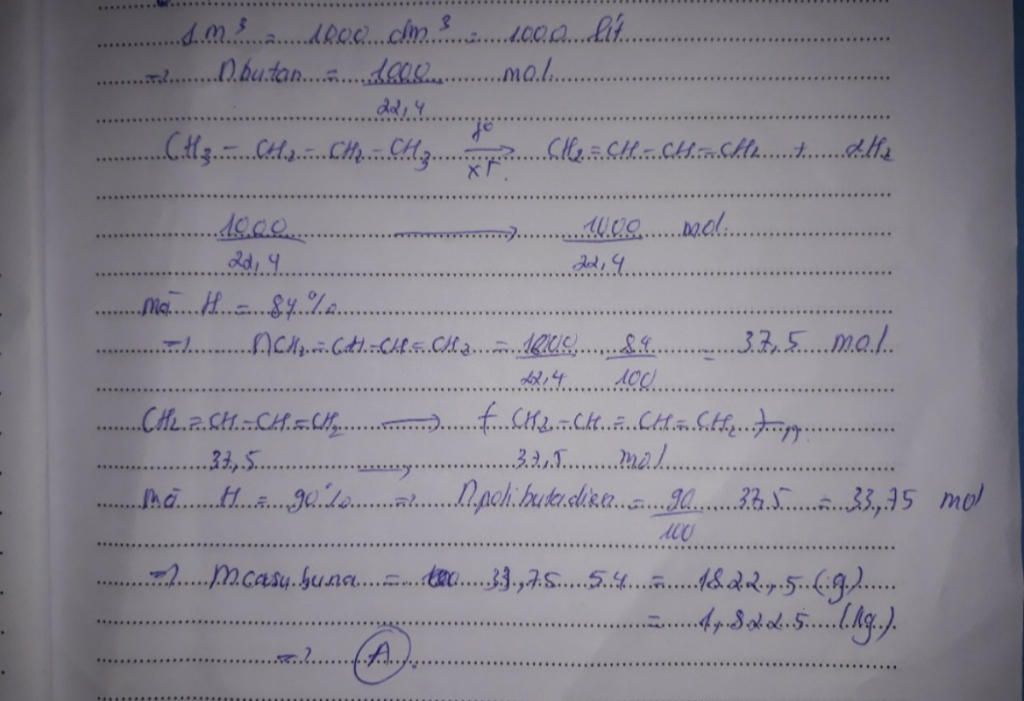 1 m³ = 1000 dm³ = 1000 lít
=> nbutan = 1000/22,4 mol
CH3 - CH2 - CH2 - CH3 →(t°, xt) CH2=CH-CH=CH2 + 2H2
1000/22,4 → 1000/22,4 mol
mà H = 84%
=> nCH2=CH-CH=CH2 = 1000/22,4 . 84/100 = 37,5 mol
CH2=CH-CH=CH2 → ( CH2-CH=CH-CH2 )n
37,5 → 37,5 mol
mà H = 90% => npolibutadien = 90/100 . 37,5 = 33,75 mol
=> mcasu buna = 33,75 . 54 = 1822,5 (g)
= 1,8225 (kg)
=> A